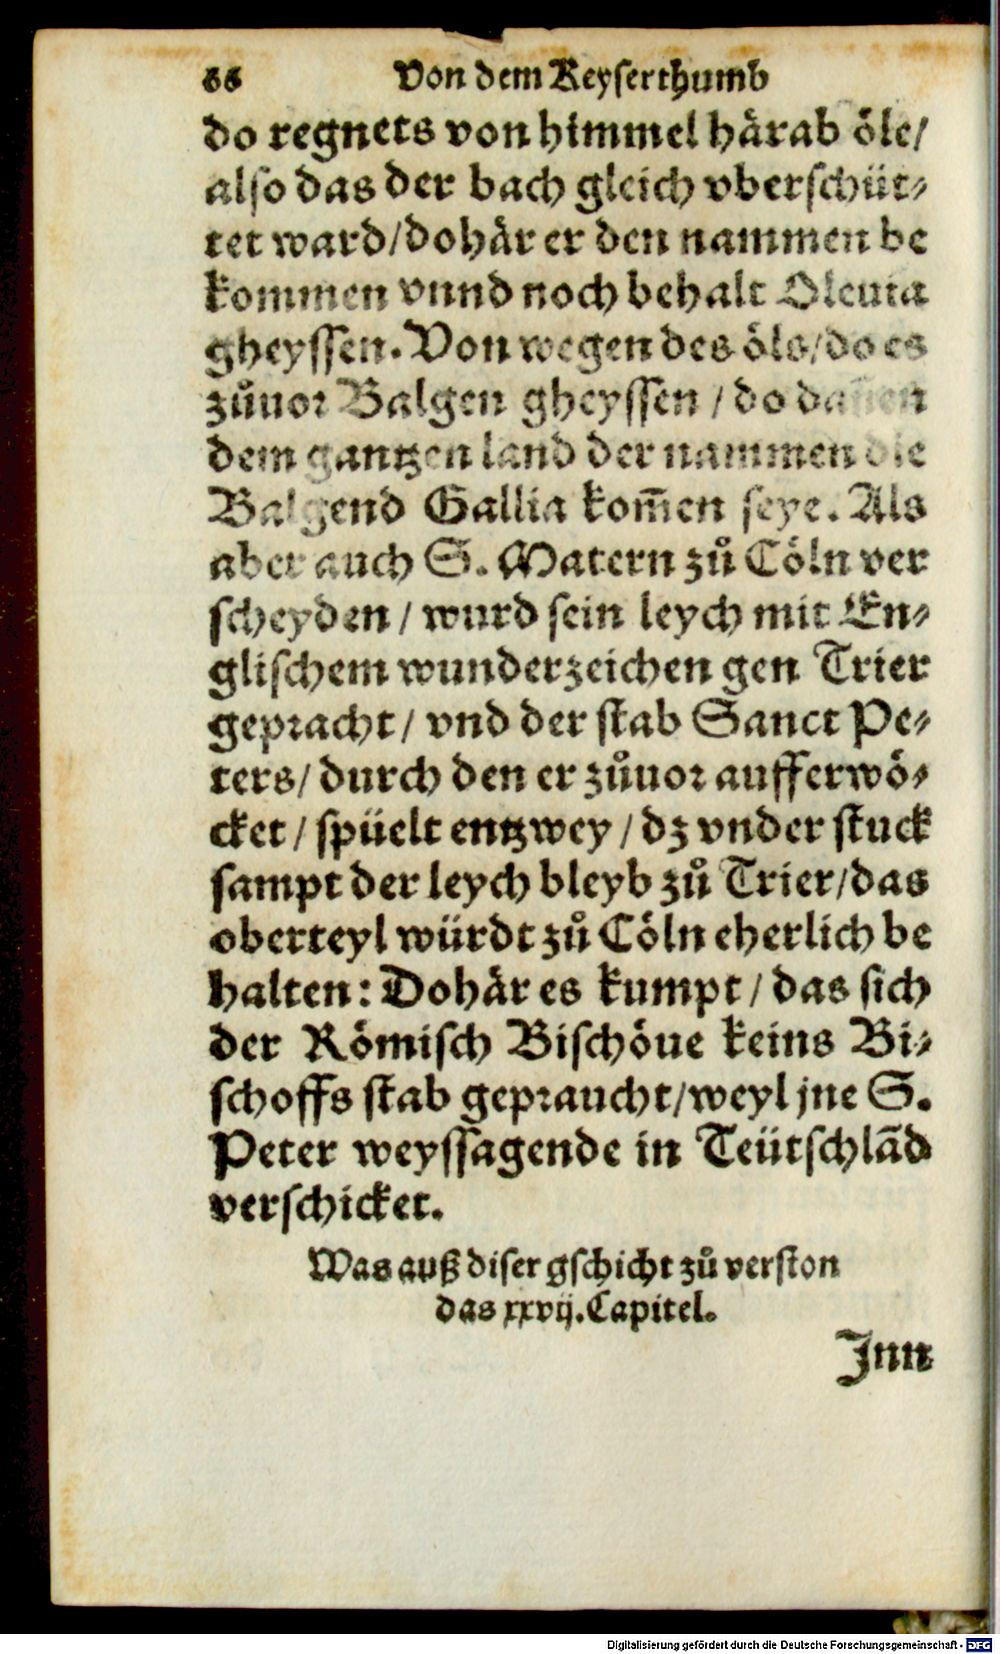 66 Von dem Keyserthumb
do regnets von himmel härab öle/
also das der bach gleich vberschüt⸗
tet ward/dohär er den nammen be
kommen vnnd noch behalt Oleuia
gheyssen. Von wegen des öls/do es
zůuor Balgen gheyssen / do dannen
dem gantzen land der nammen die
Balgend Gallia kom̄en seye. Als
aber auch S. Matern zů Cöln ver
scheyden / wurd sein leych mit En⸗
glischem wunderzeichen gen Trier
gepracht/ vnd der stab Sanct Pe⸗
ters/ durch den er zůuor aufferwö⸗
cket / spüelt entzwey / dz vnder stuck
sampt der leych bleyb zů Trier/das
oberteyl würdt zů Cöln eherlich be
halten: Dohär es kumpt / das sich
der Römisch Bischöue keins Bi⸗
schoffs stab gepraucht/weyl jne S.
Peter weyssagende in Teütschlãd
verschicket.
Was auß diser gschicht zů verston
das xxvij. Capitel.
Jnn
Digitalisierung gefördert durch die Deutsche Forschungsgemeinschaft - DFG